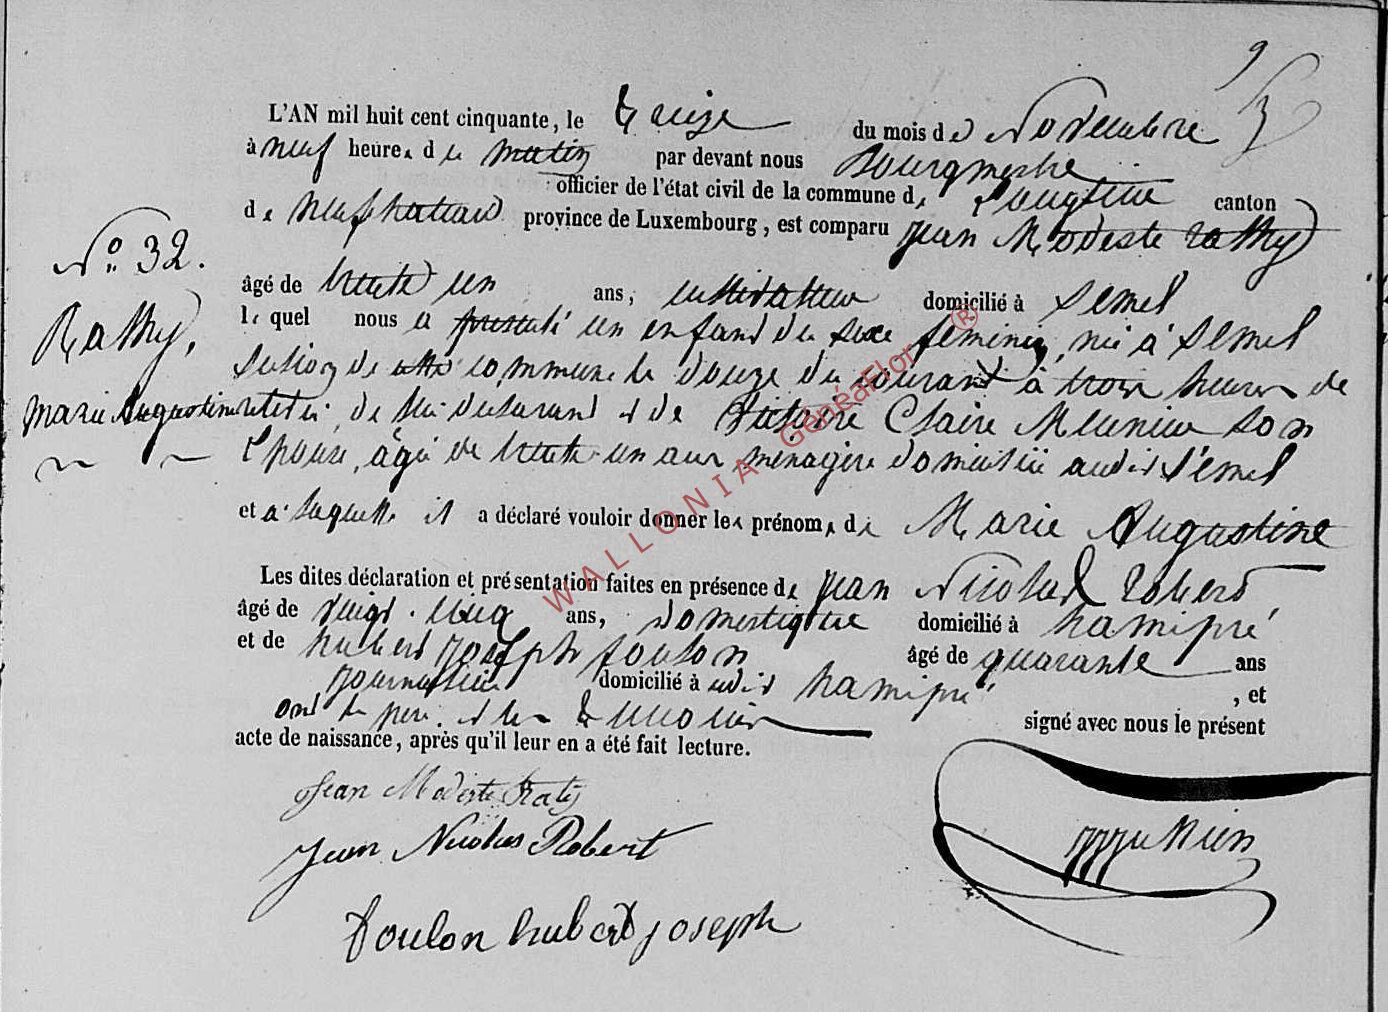 9
L'AN mil huit cent cinquante, le treize du mois de Novembre
à neuf heures du matin par devant nous Bourgmestre
officier de l'état civil de la commune de Longlier canton
de Neufchateau province de Luxembourg, est comparu Jean Modeste Rathy
N° 32.
âgé de trente un ans, instituteur domicilié à Semel
Rathy,
le quel nous a presenté un enfant du sexe feminin, née à Semel
section de cette commune le douze du courant à trois heures de
Marie Augustine
relevée, de lui déclarant et de Victoire Claire Meunier son
Epouse, âgée de trente un ans ménagère domiciliée audit Semel
et a laquelle il a déclaré vouloir donner les prénoms de Marie Augustine
Les dites déclaration et présentation faites en présence de Jean Nicolas Robert
âgé de vingt-cinq ans, domestique domicilié à hamipré
et de hubert joseph foulon âgé de quarante ans
journalier domicilié à audit hamipré , et
ont le père et les temoins signé avec nous le présent
acte de naissance, après qu'il leur en a été fait lecture.
Jean Modeste Rathy
Jean Nicolas Robert
foulon hubert joseph
WALLONIA GénéaFlor ®